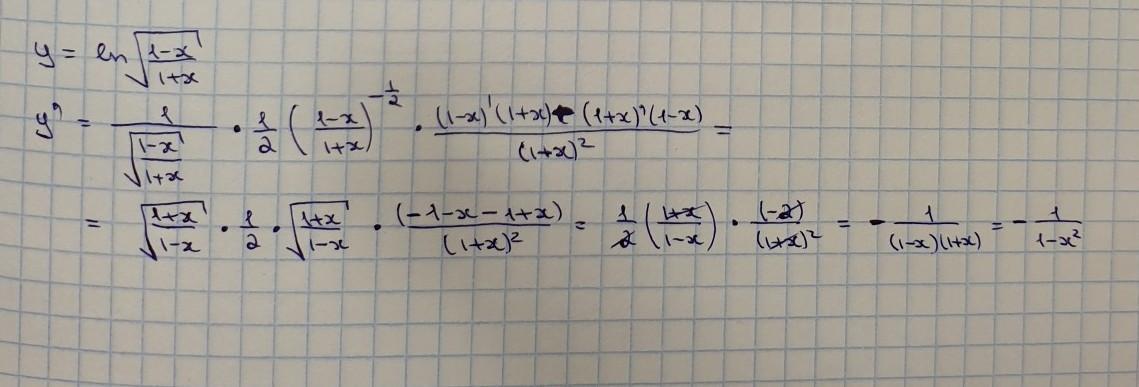 y = ln √((1-x)/(1+x))
y' = 1/√((1-x)/(1+x)) · 1/2 ((1-x)/(1+x))^(-1/2) · ((1-x)'(1+x) - (1+x)'(1-x))/(1+x)² =
= √((1+x)/(1-x)) · 1/2 · √((1+x)/(1-x)) · (-1-x-1+x)/(1+x)² = 1/2 ((1+x)/(1-x)) · (-2)/(1+x)² = - 1/((1-x)(1+x)) = - 1/(1-x²)